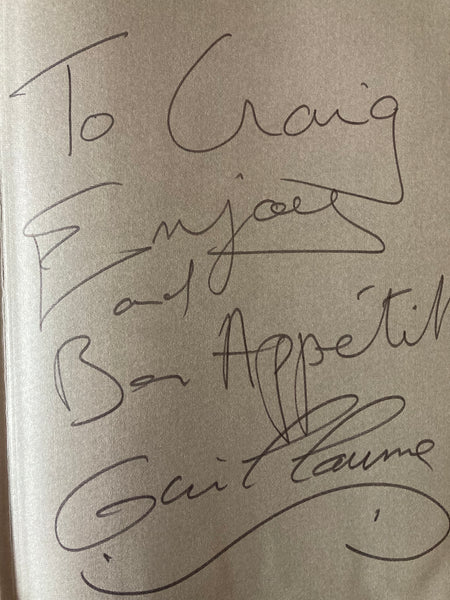 To Craig
Enjoy
and
Bon Appétit
Guillaume